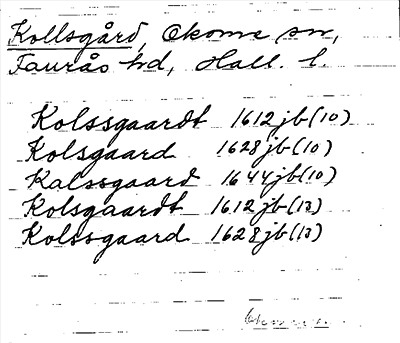 Kollsgård, Okome sn,
Faurås hd, Hall. l.
Kolssgaardt 1612 jb (10)
Kolsgaard 1628 jb (10)
Kalssgaard 1644 jb (10)
Kolsgaardt 1612 jb (13)
Kolssgaard 1628 jb (13)